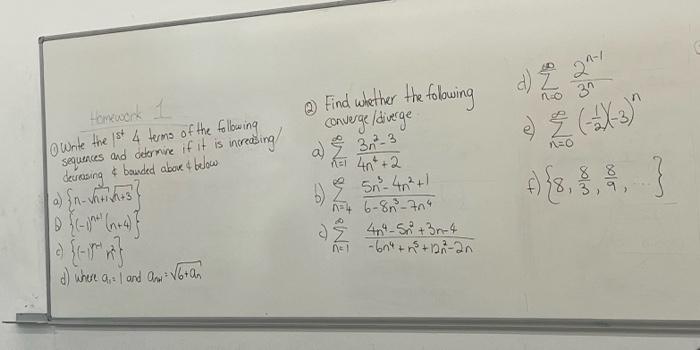 Homework 1
① Write the 1st 4 terms of the following
sequences and determine if it is increasing/
decreasing & bounded above & below
a) {n-√n+1√n+3}
b) {(-1)ⁿ⁺¹(n+4)}
c) {(-1)ⁿ⁻¹ n²}
d) where a₁=1 and aₙ₊₁=√6+aₙ
② Find whether the following
converge/diverge
a) ∞∑n=1 3n²-3/4n⁴+2
b) ∞∑n=4 5n³-4n²+1/6-8n³-7n⁴
c) ∞∑n=1 4n⁴-5n²+3n-4/-6n⁴+n⁵+12n²-2n
d) ∞∑n=0 2ⁿ⁻¹/3ⁿ
e) ∞∑n=0 (-1/2)(-3)ⁿ
f) {8, 8/3, 8/9, ...}